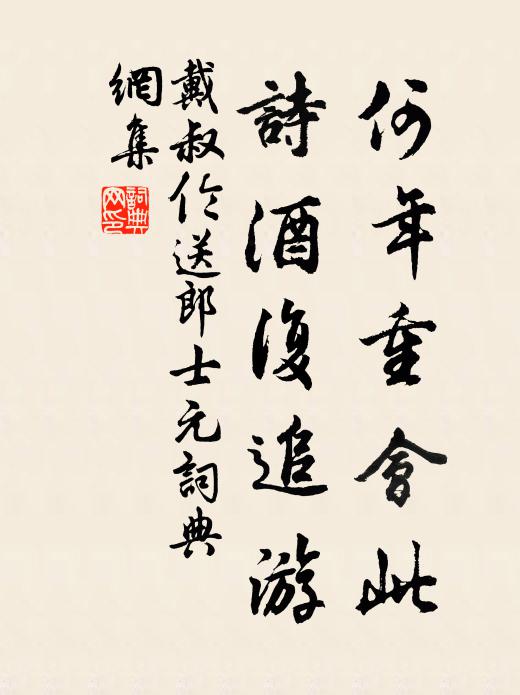 何年重會此
詩酒復追游
戴叔伦送郎士元詞典
網集
詞典
网印